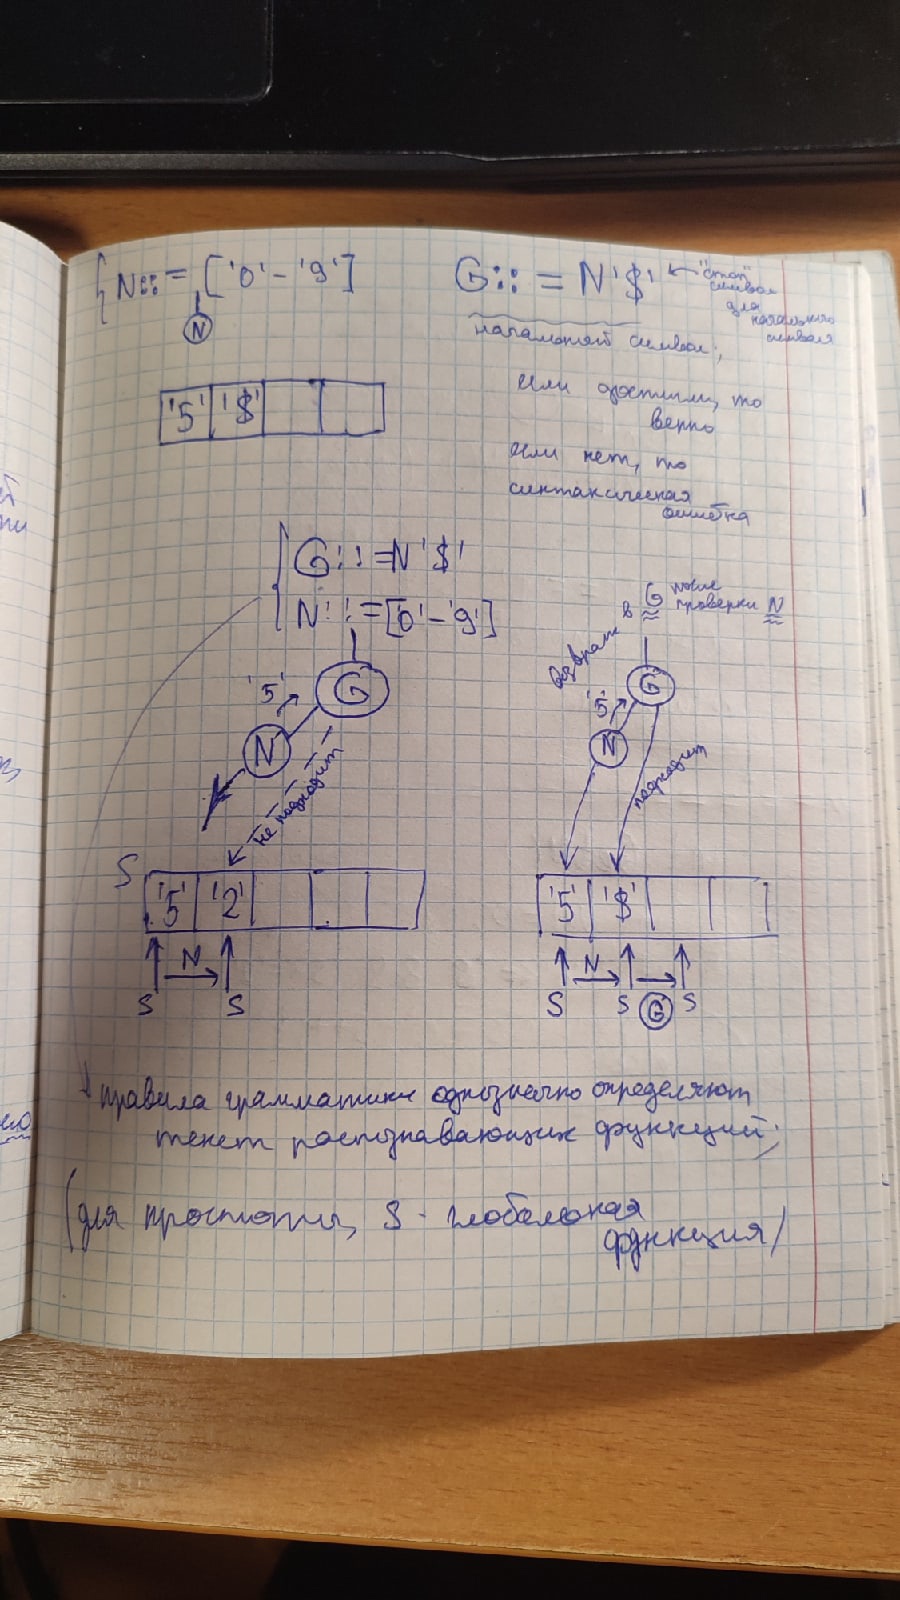 N::= ['0'-'9']
N
G::= N'$' ← "стоп"
символ
для
начального
символа
начальный символ;
'5' '$'
Если достигли, то
верно
Если нет, то
синтаксическая
ошибка
G::=N'$'
N::=['0'-'9']
'5' G
N
не подходит
S '5' '2'
N
S S
возврат в G после
проверки N
'5' G
N
подходит
'5' '$'
N
S S G S
правила грамматики однозначно определяют
текст распознающих функций;
(для простоты, S - глобальная
функция)